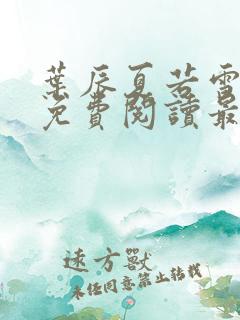 葉辰夏若雪
免費閱讀最
遠方獸
未經同意禁止轉載